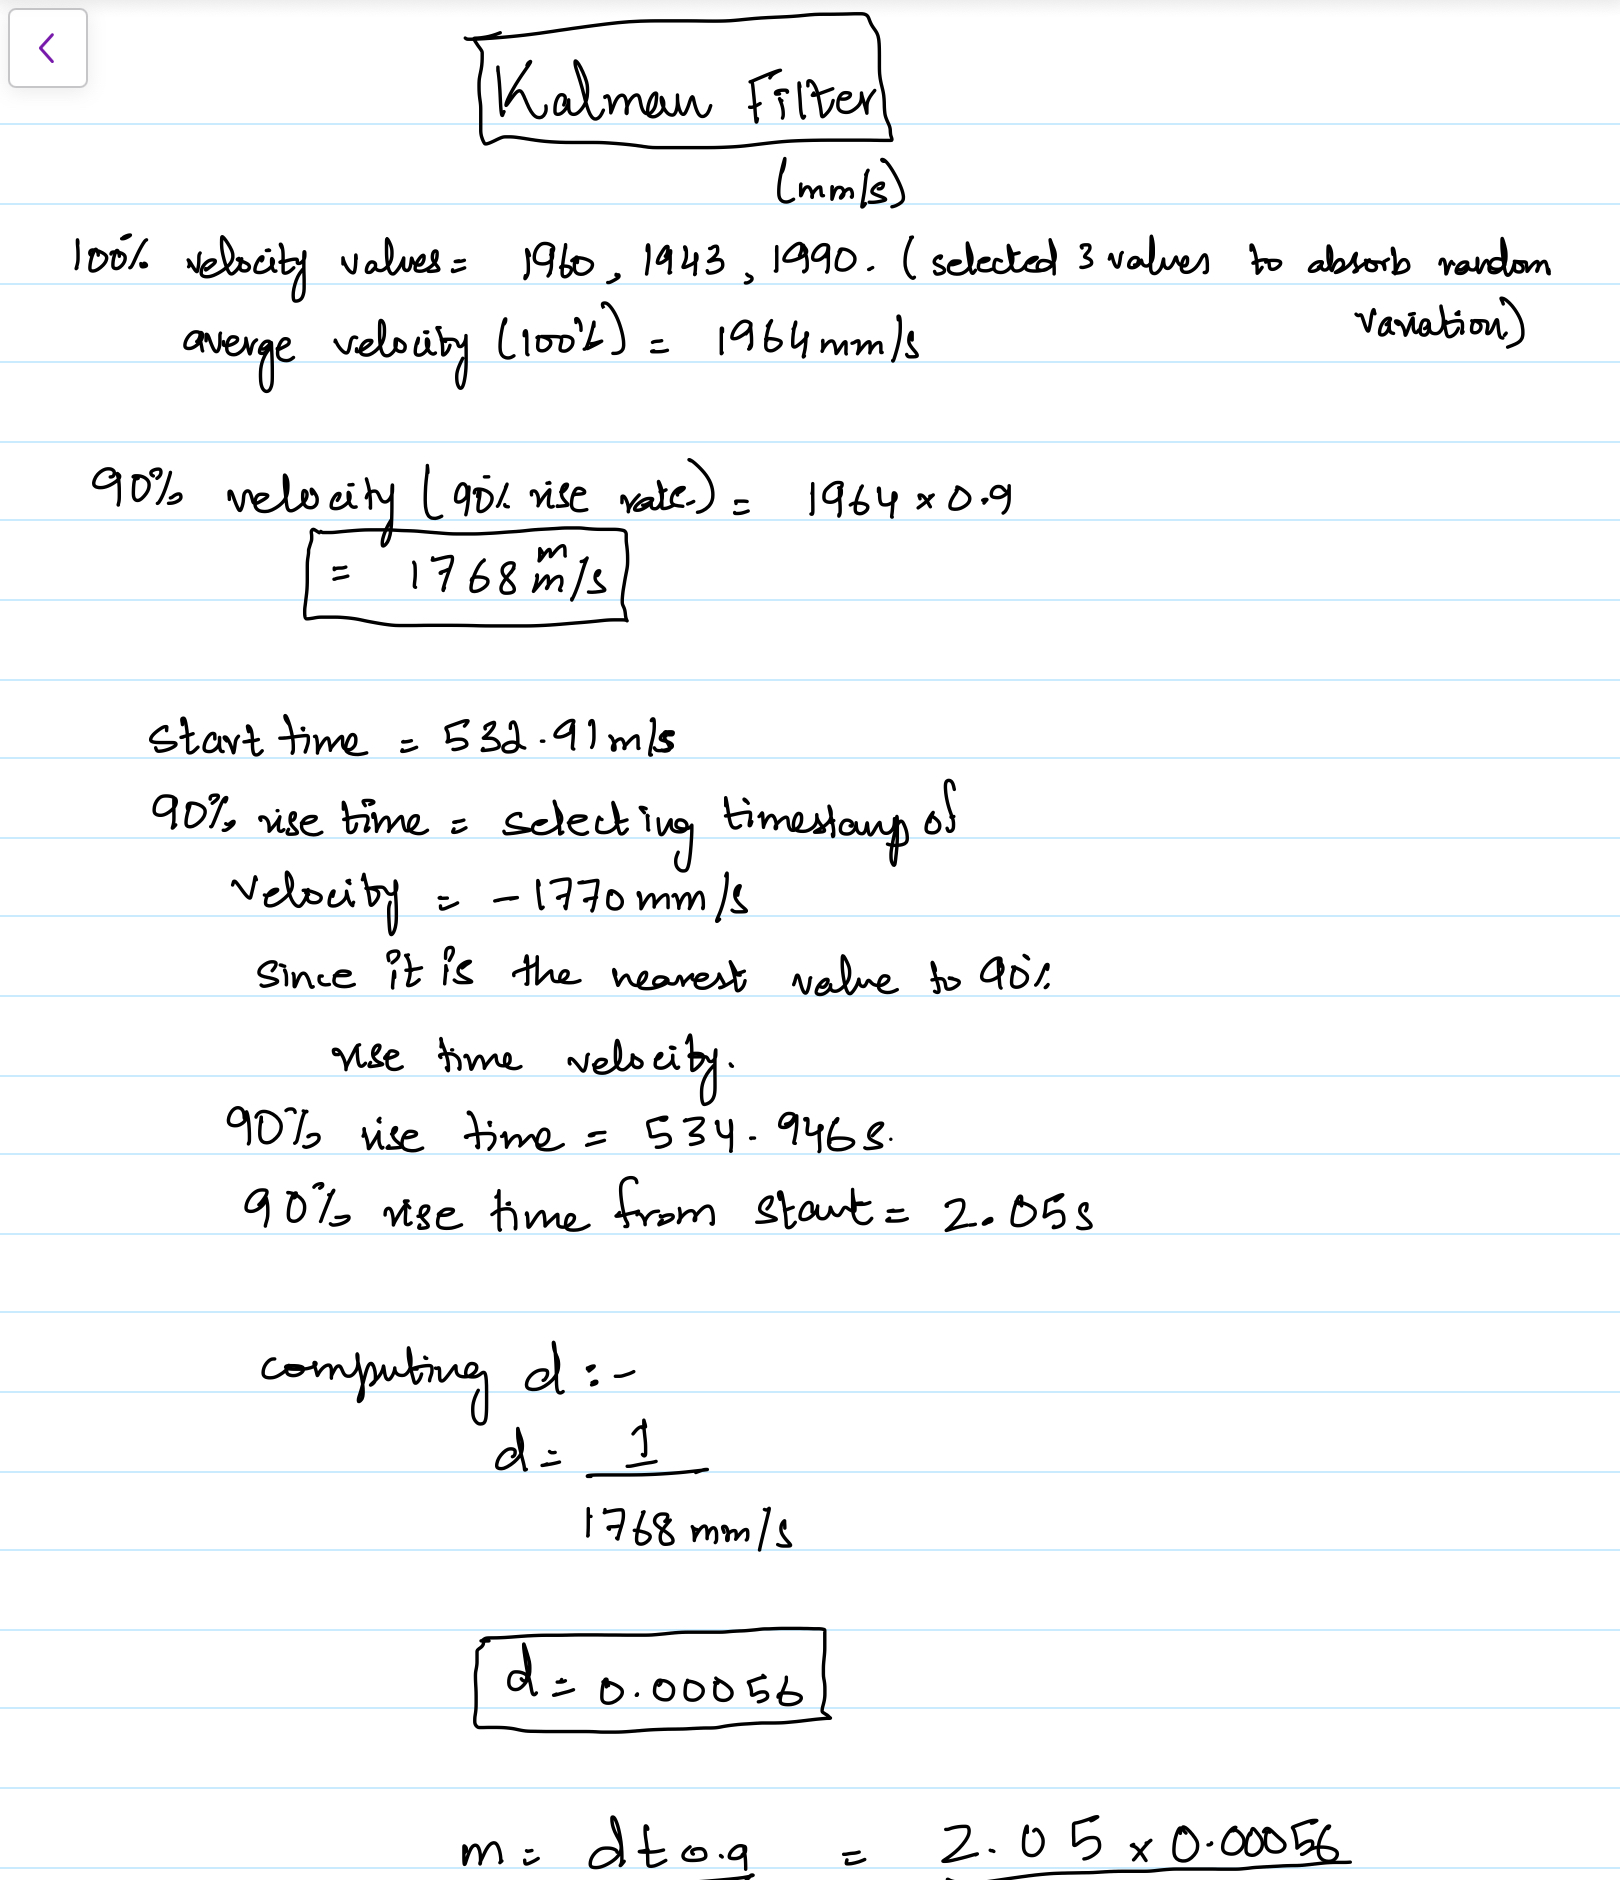 Kalman Filter
(mm/s)
100% velocity values = 1960, 1943, 1990. (selected 3 values to absorb random
variation)
averge velocity (100%) = 1964 mm/s
90% velocity (90% rise rate.) = 1964 x 0.9
= 1768 mm/s
start time = 532.91 m/s
90% rise time = selecting timestamp of
velocity = -1770 mm/s
since it is the nearest value to 90%
rise time velocity.
90% rise time = 534.946 s.
90% rise time from start = 2.05 s
computing d :-
d = 1
1768 mm/s
d = 0.00056
m = dt0.9 = 2.05 x 0.00056